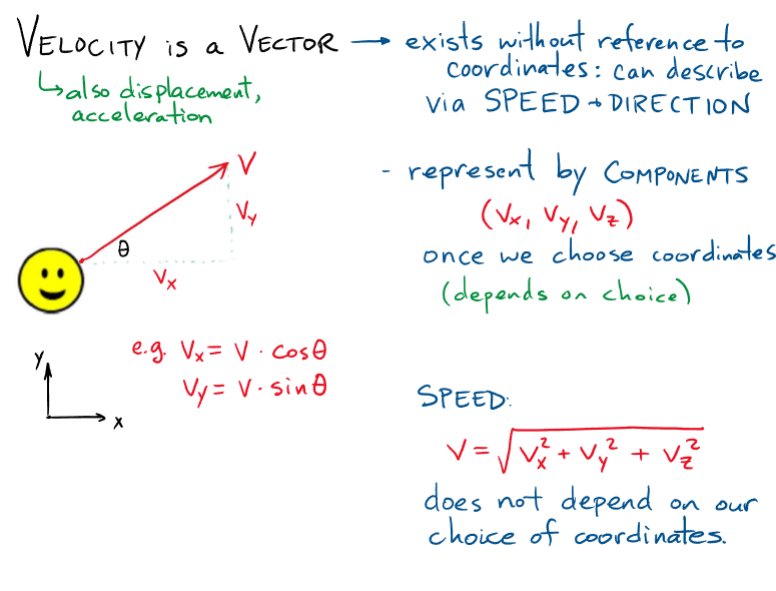 VELOCITY IS A VECTOR → exists without reference to
coordinates: can describe
via SPEED + DIRECTION
↳ also displacement,
acceleration
- represent by COMPONENTS
(Vx, Vy, Vz)
once we choose coordinates
(depends on choice)
V
Vy
θ
Vx
e.g. Vx = V · cosθ
Vy = V · sinθ
y
x
SPEED:
V = √(Vx² + Vy² + Vz²)
does not depend on our
choice of coordinates.